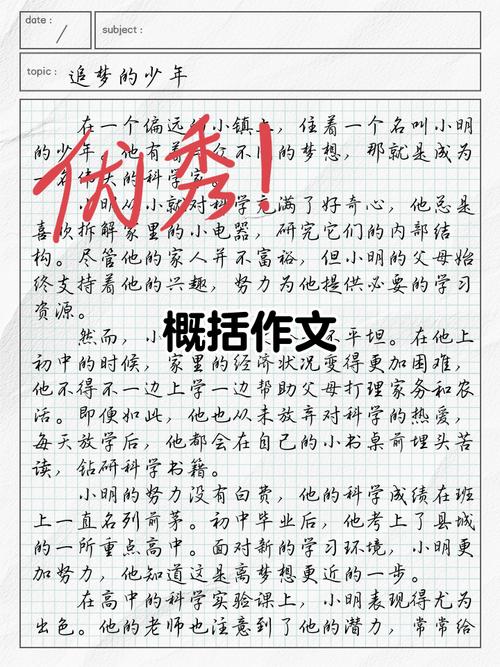 date :
subject :
topic : 追梦的少年
在一个偏远的小镇上，住着一个名叫小明
的少年，他有着与众不同的梦想，那就是成为
一名伟大的科学家。
优秀！
小明从小就对科学充满了好奇心，他总是
喜欢拆解家里的小电器，研究它们的内部结
构。尽管他的家人并不富裕，但小明的父母始
终支持着他的兴趣，努力为他提供必要的学习
资源。
然而，小 不平坦。在他上
概括作文
初中的时候，家里的经济状况变得更加困难，
他不得不一边上学一边帮助父母打理家务和农
活。即便如此，他也从未放弃对科学的热爱，
每天放学后，他都会在自己的小书桌前埋头苦
读，钻研科学书籍。
小明的努力没有白费，他的科学成绩在班
上一直名列前茅。初中毕业后，他考上了县城
的一所重点高中。面对新的学习环境，小明更
加努力，他知道这是离梦想更近的一步。
在高中的科学实验课上，小明表现得尤为
出色。他的老师也注意到了他的潜力，常常给